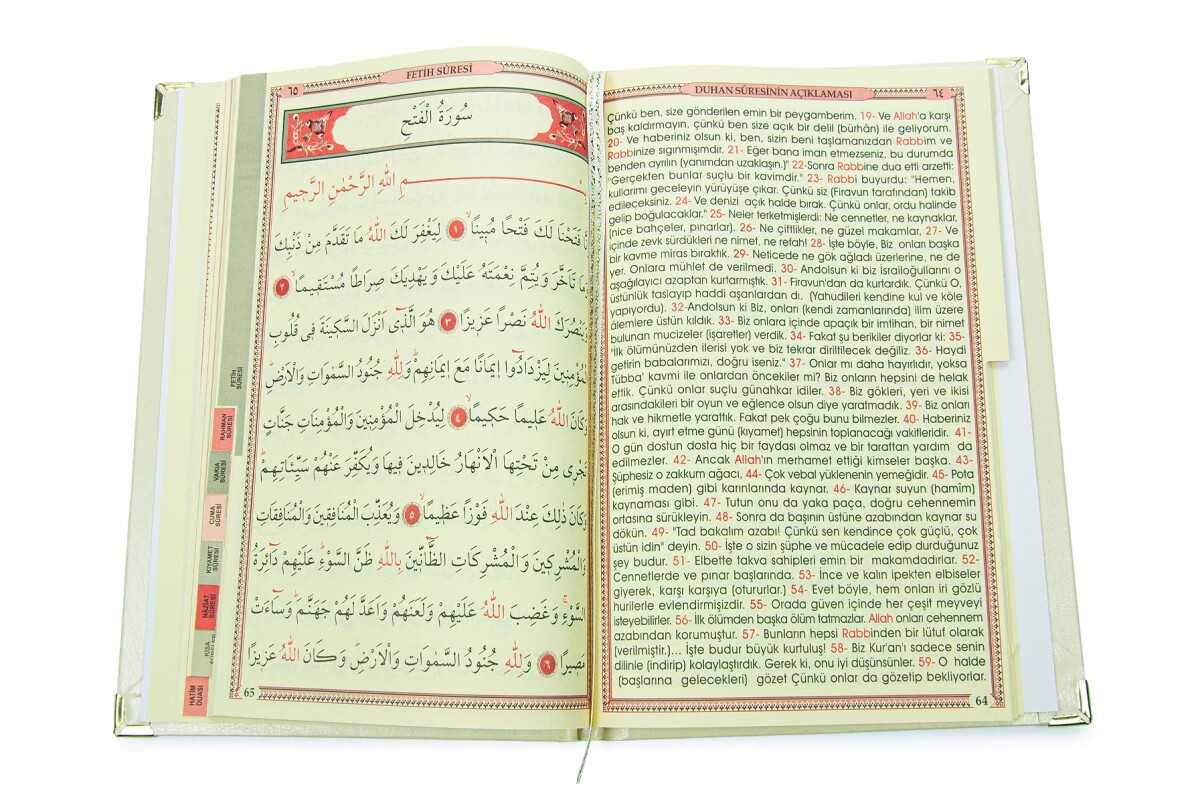 DUHAN SÛRESİNİN AÇIKLAMASI
٦٤
Çünkü ben, size gönderilen emin bir peygamberim. 19- Ve Allah'a karşı
baş kaldırmayın, çünkü ben size açık bir delil (bürhân) ile geliyorum.
20- Ve haberiniz olsun ki, ben, sizin beni taşlamanızdan Rabbim ve
Rabbinize sıgınmışımdır. 21- Eğer bana iman etmezseniz, bu durumda
benden ayrılın (yanımdan uzaklaşın." 22-Sonra Rabbine dua etti arzetti:
"Gerçekten bunlar suçlu bir kavimdir." 23- Rabbi buyurdu: "Hemen,
kullarımı geceleyin yürüyüşe çıkar. Çünkü siz (Firavun tarafından) takib
edileceksiniz. 24- Ve denizi açık halde bırak. Çünkü onlar, ordu halinde
gelip boğulacaklar." 25- Neler terketmişlerdi: Ne cennetler, ne kaynaklar,
(nice bahçeler, pınarlar). 26- Ne çiftlikler, ne güzel makamlar, 27- Ve
içinde zevk sürdükleri ne nimet, ne refah! 28- İşte böyle, Biz onları başka
bir kavme miras bıraktık. 29- Neticede ne gök ağladı üzerlerine, ne de
yer. Onlara mühlet de verilmedi. 30- Andolsun ki biz İsrailoğullarını o
aşağılayıcı azaptan kurtarmıştık. 31- Firavun'dan da kurtardık. Çünkü O,
üstünlük taslayıp haddi aşanlardan dı. (Yahudileri kendine kul ve köle
yapıyordu). 32-Andolsun ki Biz, onları (kendi zamanlarında) ilim üzere
âlemlere üstün kıldık. 33- Biz onlara içinde apaçık bir imtihan, bir nimet
bulunan mucizeler (işaretler) verdik. 34- Fakat şu berikiler diyorlar ki: 35-
"İlk ölümünüzden ilerisi yok ve biz tekrar diriltilecek değiliz. 36- Haydi
getirin babalarımızı, doğru iseniz." 37- Onlar mı daha hayırlıdır, yoksa
Tübba' kavmi ile onlardan öncekiler mi? Biz onların hepsini de helak
ettik. Çünkü onlar suçlu günahkar idiler. 38- Biz gökleri, yeri ve ikisi
arasındakileri bir oyun ve eğlence olsun diye yaratmadık. 39- Biz onları
hak ve hikmetle yarattık. Fakat pek çoğu bunu bilmezler. 40- Haberiniz
olsun ki, ayırt etme günü (kıyamet) hepsinin toplanacağı vakitleridir. 41-
O gün dostun dosta hiç bir faydası olmaz ve bir taraftan yardım da
edilmezler. 42- Ancak Allah'ın merhamet ettiği kimseler başka. 43-
Şüphesiz o zakkum ağacı, 44- Çok vebal yüklenenin yemeğidir. 45- Pota
(erimiş maden) gibi karınlarında kaynar. 46- Kaynar suyun (hamîm)
kaynaması gibi. 47- Tutun onu da yaka paça, doğru cehennemin
ortasına sürükleyin. 48- Sonra da başının üstüne azabından kaynar su
dökün. 49- "Tad bakalım azabı! Çünkü sen kendince çok güçlü, çok
üstün idin" deyin. 50- İşte o sizin şüphe ve mücadele edip durduğunuz
şey budur. 51- Elbette takva sahipleri emin bir makamdadırlar. 52-
Cennetlerde ve pınar başlarında. 53- İnce ve kalın ipekten elbiseler
giyerek, karşı karşıya (otururlar.) 54- Evet böyle, hem onları iri gözlü
hurilerle evlendirmişizdir. 55- Orada güven içinde her çeşit meyveyi
isteyebilirler. 56- İlk ölümden başka ölüm tatmazlar. Allah onları cehennem
azabından korumuştur. 57- Bunların hepsi Rabbinden bir lütuf olarak
(verilmiştir.)... İşte budur büyük kurtuluş! 58- Biz Kur'an'ı sadece senin
dilinle (indirip) kolaylaştırdık. Gerek ki, onu iyi düşünsünler. 59- O halde
(başlarına gelecekleri) gözet Çünkü onlar da gözetip bekliyorlar.
64
FETİH SÛRESİ
٦٥
سُورَةُ الْفَتْحِ
بِسْمِ اللّٰهِ الرَّحْمٰنِ الرَّحِيمِ
اِنَّا فَتَحْنَا لَكَ فَتْحًا مُبِينًا ۙ ١ لِيَغْفِرَ لَكَ اللّٰهُ مَا تَقَدَّمَ مِنْ ذَنْبِكَ
وَمَا تَاَخَّرَ وَيُتِمَّ نِعْمَتَهُ عَلَيْكَ وَيَهْدِيَكَ صِرَاطًا مُسْتَقِيمًا ۙ ٢
وَيَنْصُرَكَ اللّٰهُ نَصْرًا عَزِيزًا ٣ هُوَ الَّذٖٓي اَنْزَلَ السَّكِينَةَ فٖي قُلُوبِ
الْمُؤْمِنِينَ لِيَزْدَادُٓوا اِيمَانًا مَعَ اِيمَانِهِمْ ۜ وَلِلّٰهِ جُنُودُ السَّمٰوَاتِ وَالْاَرْضِ ۜ
وَكَانَ اللّٰهُ عَلِيمًا حَكِيمًا ۙ ٤ لِيُدْخِلَ الْمُؤْمِنِينَ وَالْمُؤْمِنَاتِ جَنَّاتٍ
تَجْرٖي مِنْ تَحْتِهَا الْاَنْهَارُ خَالِدِينَ فِيهَا وَيُكَفِّرَ عَنْهُمْ سَيِّئَاتِهِمْ ۜ
وَكَانَ ذٰلِكَ عِنْدَ اللّٰهِ فَوْزًا عَظِيمًا ۙ ٥ وَيُعَذِّبَ الْمُنَافِقِينَ وَالْمُنَافِقَاتِ
وَالْمُشْرِكِينَ وَالْمُشْرِكَاتِ الظَّٓانِّينَ بِاللّٰهِ ظَنَّ السَّوْءِ ۜ عَلَيْهِمْ دَٓائِرَةُ
السَّوْءِ ۚ وَغَضِبَ اللّٰهُ عَلَيْهِمْ وَلَعَنَهُمْ وَاَعَدَّ لَهُمْ جَهَنَّمَ ۜ وَسَٓاءَتْ
مَصِيرًا ٦ وَلِلّٰهِ جُنُودُ السَّمٰوَاتِ وَالْاَرْضِ ۜ وَكَانَ اللّٰهُ عَزِيزًا
65
FETİH
SÛRESİ
RAHMAN
SÛRESİ
VAKIA
SÛRESİ
CUMA
SÛRESİ
KIYAMET
SÛRESİ
NÂZİAT
SÛRESİ
KISA
HATİM
DUASI